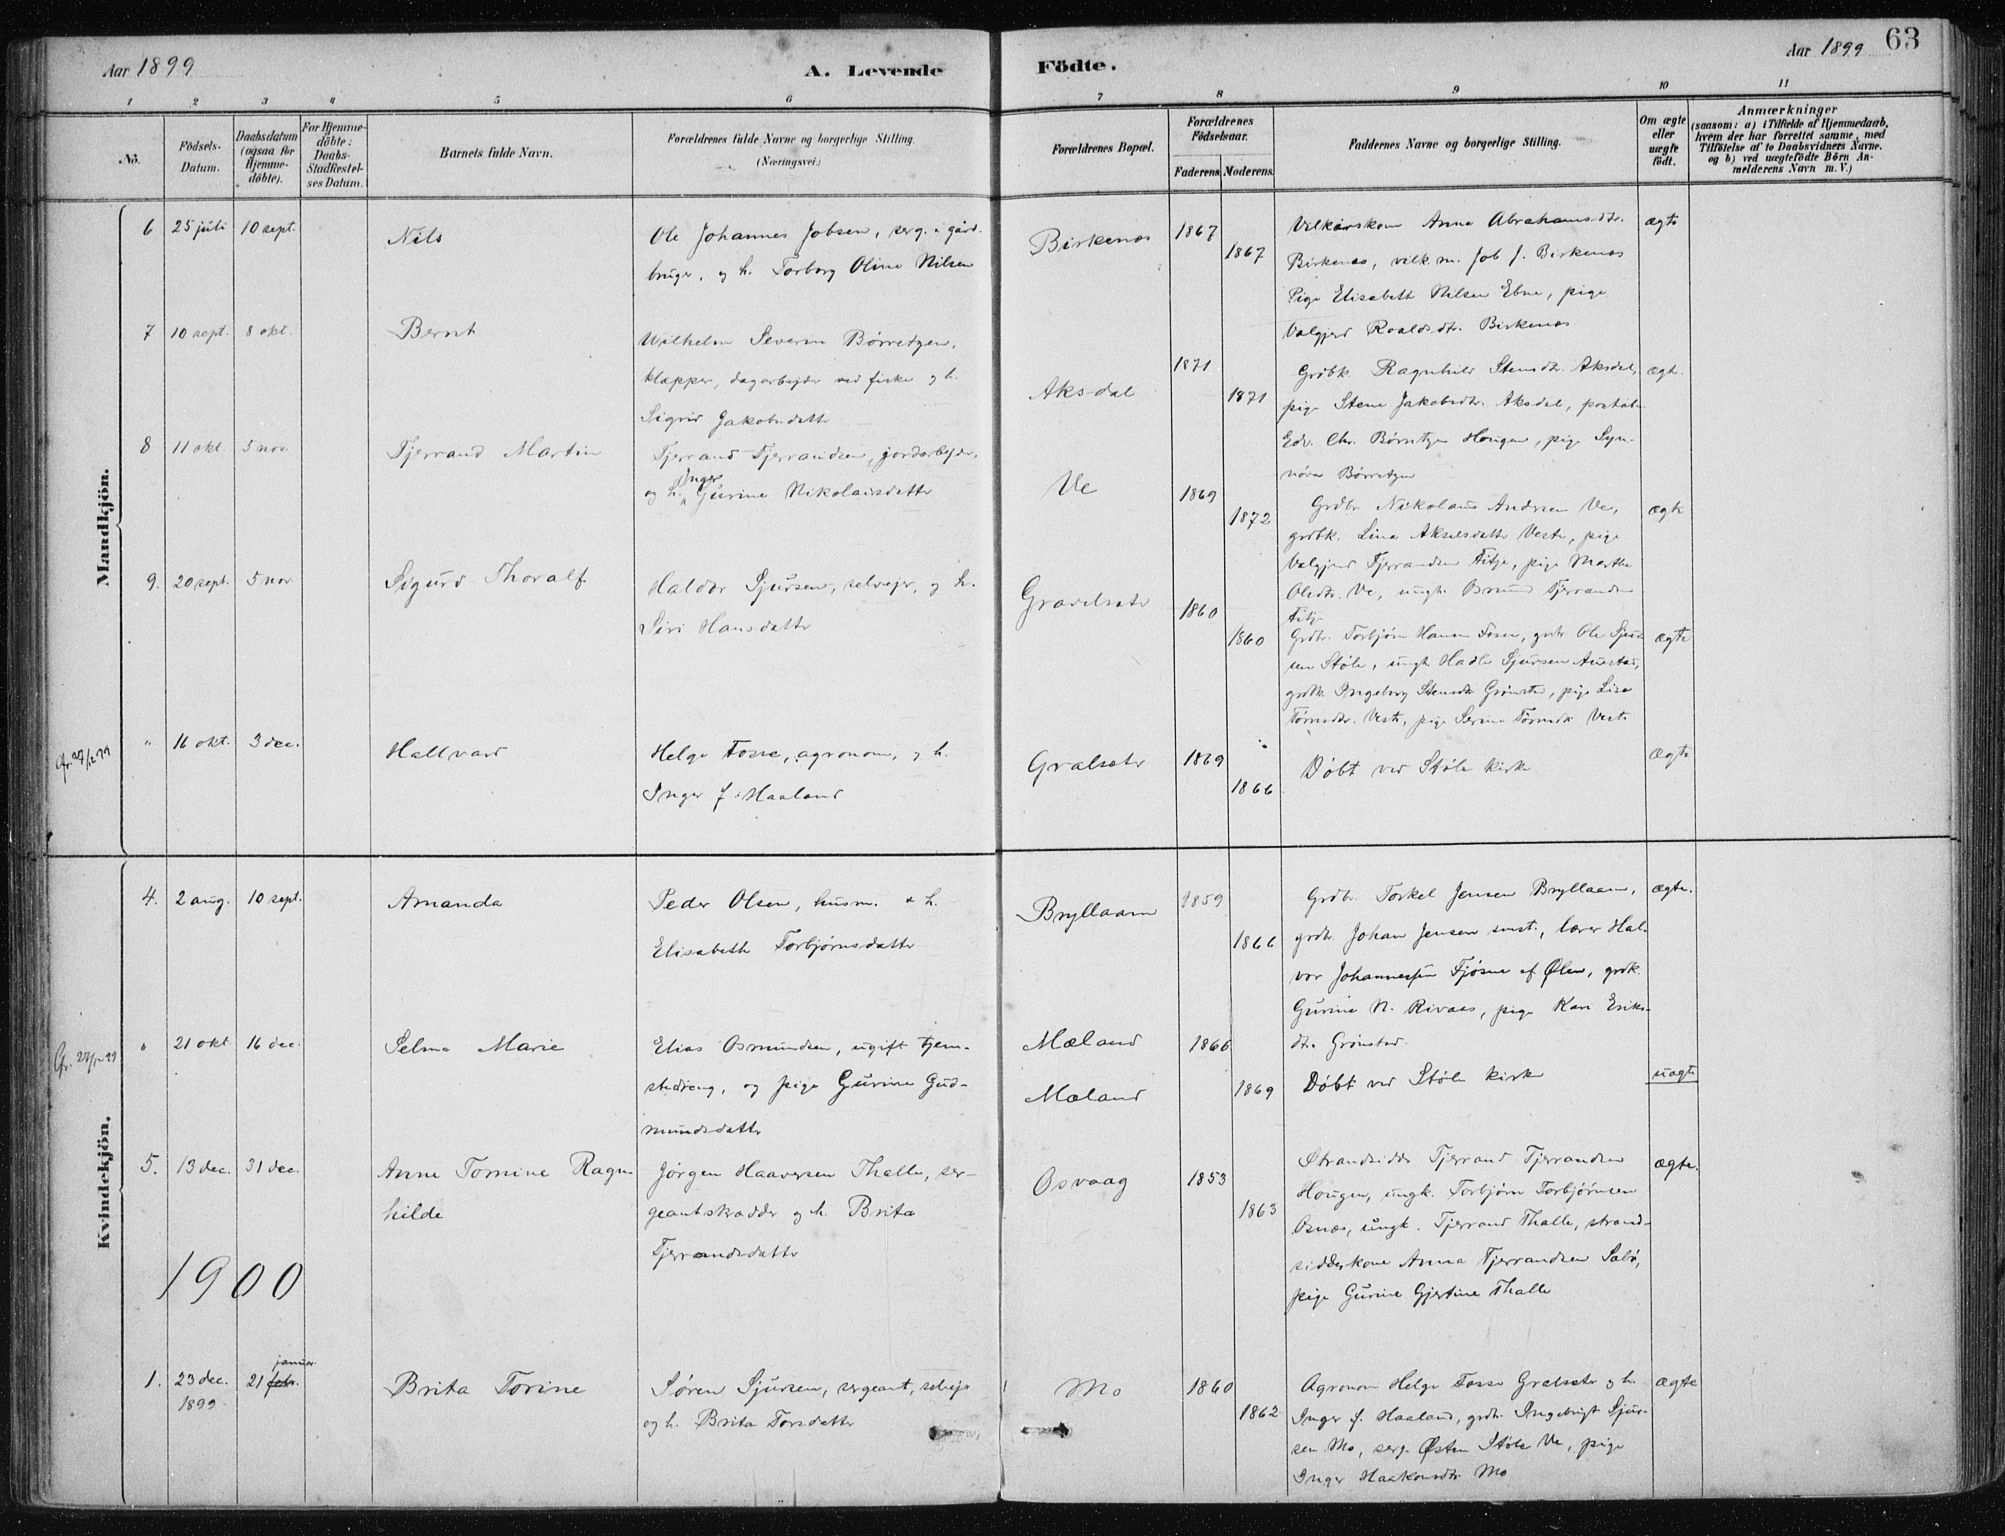 Aar 1899
A. Levende
Födte.
Aar 1899
63
1 2 3 4 5 6 7 8 9 10 11
No.
Födsels-
Datum.
Daabsdatum
(ogsaa for
Hjemme-
döbte).
For Hjemme-
döbte:
Daabs-
Stadfæstel-
ses Datum.
Barnets fulde Navn.
Forældrenes fulde Navne og borgerlige Stilling.
(Næringsvei.)
Forældrenes Bopæl.
Forældrenes
Födselsaar.
Faderens. Moderens.
Faddernes Navne og borgerlige Stilling.
Om ægte
eller
uægte
födt.
Anmærkninger
(saasom: a) i Tilfælde af Hjemmedaab,
hvem der har forrettet samme, med
Tilföielse af to Daabsvidners Navne.
og b) ved uægtefödte Börn An-
melderens Navn m. V.)
Mandkjön.
6 25 juli 10 sept. Nils
Ole Johannes Jobsen, serg. i gård-
bruger, og h. Torborg Oline Nilsen
Birkenes 1867
1867
Vilkårskone Anna Abrahamsdtr.
Birkenes, vilk.m. Job J. Birkenes
Pige Elisabeth Nilsen Ebne, pige
Valgjerd Roaldsdtr. Birkenes
ægte
7 10 sept. 8 okt. Bernt
Wilhelm Severin Børretzen,
klapper, dagarbejder ved fiske og h.
Sigrid Jakobsdatter
Aksdal 1871
1871
Grdbk. Ragnhild Stensdtr. Aksdal,
pige Stene Jakobsdtr. Aksdal,
Edv. Chr. Børretzen Hougen, pige Syn-
növe Børretzen
ægte
8 11 okt. 5 nov. Tjerrand Martin
Tjerrand Tjerrandsen, jordarbejder,
og h. Inger Gurine Nikolaisdatter
Ve 1869
1872
Grdbr. Nikolaus Andersen Ve,
grdbk. Lina Akselsdatter Veste, pige
Valgjerd Tjerrandsen Fitje, pige Marthe
Olsdtr. Ve, ungk. Tjerrandsen
Fitje
ægte
9. 20 sept. 5 nov. Sigurd Thoralf
Haldor Sjursen, selvejer, og h.
Siri Hansdatter
1860
1860
Grdbr. Torbjörn Hansen Fosen, grdbr. Ole Sjur-
sen Støle, ungk. Hadle Sjursen Austad,
grdbk. Ingeborg Stensdtr. Grønstad, pige Lisa
Tørresdtr. Veste, pige Serine Tørresdtr. Veste
ægte
" 16 okt. 3 dec. Hallvard
Helge Fosse, agronom, og h.
Inger f. Haaland
Gralsæter 1869
1866
Døbt ved Støle kirke
ægte
Kvindekjön.
4. 2 aug. 10 sept. Amanda
Peder Olsen, husm. & h.
Elisabeth Torbjørnsdatter
Bryllaam 1859
1866
Grdbr. Torkel Jensen Bryllaam,
grdbr. Johan Jensen smst., lærer Hal-
vor Johannessen Fjösne af Ølen, grdk.
Gurine N. Rivaas, pige Kari Eriks-
dtr. Grönstad.
ægte.
" 21 okt. 16 dec. Selma Marie
Elias Osmundsen, ugift tjen-
stedreng, og pige Gurine Gud-
mundsdatter
Mæland 1866
Mæland 1869
Døbt ved Støle kirke
uægte
5. 13 dec. 31 dec. Anne Tomine Ragn-
hilde
Jørgen Haaversen Thalle, ser-
geantskrædder og h. Brita
Tjerrandsdatter
Osvaag 1853
1863
Strandsidder Tjerrand Tjerrandsen
Hougen, ungk. Torbjørn Torbjørnsen
Osnæs, ungk. Tjerrand Thalle, strand-
sidderkone Anna Tjerrandsen Sæbö,
pige Gurine Gjertine Thalle
ægte.
1900
1. 23 dec.
1899
januar
21 febr.
Brita Torine
Søren Sjursen, sergeant, selvejer
og h. Brita Torsdatter
Mo 1860
1862
Agronom Helge Fosse Gralsæter og h.
Inger f. Haaland, grdbr. Ingebrigt Sjur-
sen Mo, serg. Østen Støle Ve, pige
Inger Haakonsdtr. Mo
ægte